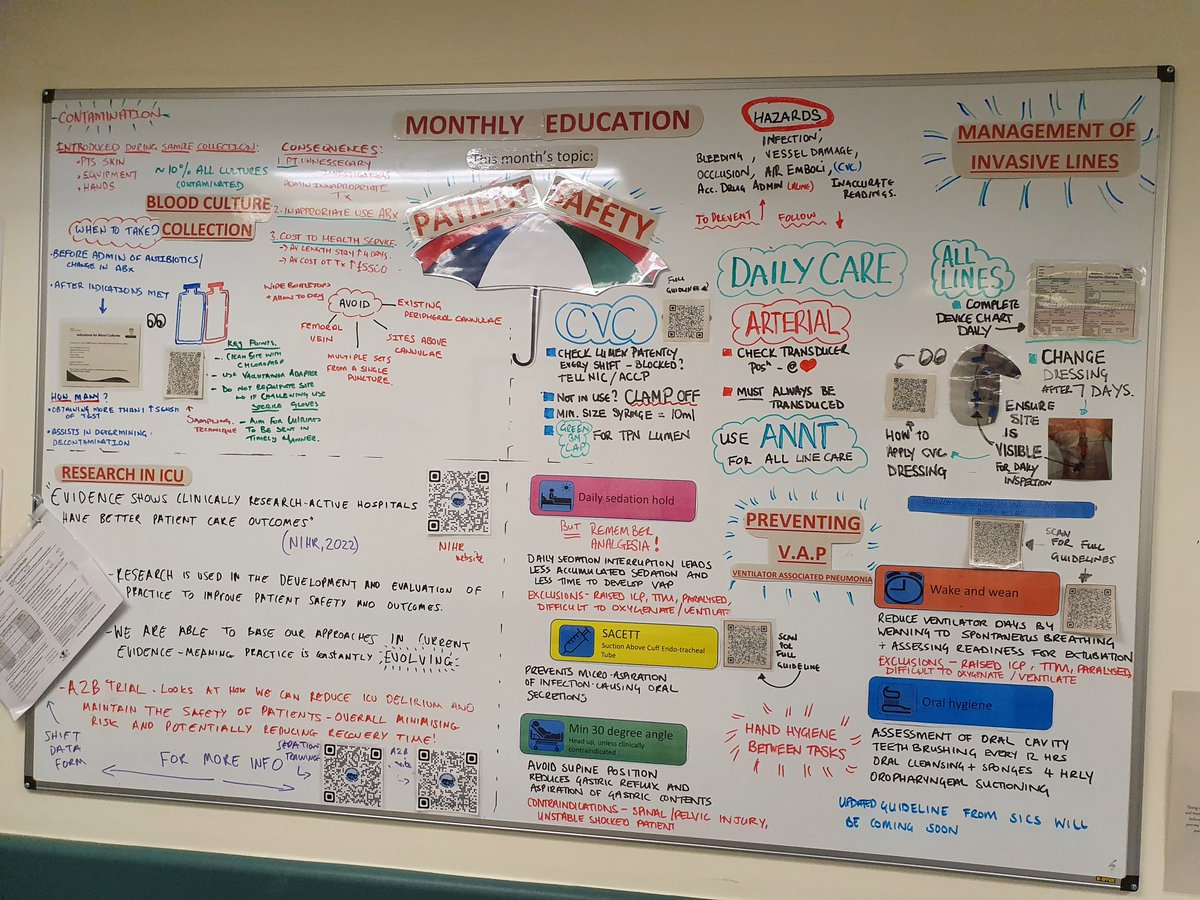 MONTHLY EDUCATION
This month's topic:
PATIENT SAFETY
CONTAMINATION
INTRODUCED DURING SAMPLE COLLECTION:
• PTS SKIN
• EQUIPMENT
• HANDS
~10% ALL CULTURES
CONTAMINATED
CONSEQUENCES:
1. PT UNNESSECARY
INVESTIGATIONS
ADMIN INAPPROPRIATE
Tx
2. INAPPROPRIATE USE ABx
3. COST TO HEALTH SERVICE
→ AV LENGTH STAY ↑ 4 DAYS.
→ AV COST OF Tx ↑ £5500
BLOOD CULTURE
COLLECTION
WHEN TO TAKE?
• BEFORE ADMIN OF ANTIBIOTICS/
CHANGE IN ABx
• AFTER INDICATIONS MET
Indications for Blood Cultures
HOW MANY?
• OBTAINING MORE THAN 1 ↑ SENSITI
OF TEST
• ASSISTS IN DETERMINING
DECONTAMINATION
WIPE BOTTLETOPS
+ ALLOW TO DRY
AVOID
EXISTING
PERIPHERAL CANNULAE
FEMORAL
VEIN
SITES ABOVE
CANNULAE
MULTIPLE SETS
FROM A SINGLE
PUNCTURE.
KEY POINTS.
- CLEAN SITE WITH
CHLORAPREP
- USE VACUTAINER ADAPTER
- DO NOT REPALPATE SITE
IF CHALLENGING USE
STERILE GLOVES
- AIM FOR CULTURES
TO BE SENT IN
TIMELY MANNER.
SAMPLING
TECHNIQUE
RESEARCH IN ICU
"EVIDENCE SHOWS CLINICALLY RESEARCH-ACTIVE HOSPITALS
HAVE BETTER PATIENT CARE OUTCOMES"
(NIHR, 2022)
NIHR
website
- RESEARCH IS USED IN THE DEVELOPMENT AND EVALUATION OF
PRACTICE TO IMPROVE PATIENT SAFETY AND OUTCOMES.
- WE ARE ABLE TO BASE OUR APPROACHES IN CURRENT
EVIDENCE - MEANING PRACTICE IS CONSTANTLY EVOLVING
- A2B TRIAL - LOOKS AT HOW WE CAN REDUCE ICU DELIRIUM AND
MAINTAIN THE SAFETY OF PATIENTS - OVERALL MINIMISING
RISK AND POTENTIALLY REDUCING RECOVERY TIME!
SHIFT
DATA
FORM
FOR MORE INFO
SEDATION
TRAINING
A2B
site
HAZARDS
INFECTION,
BLEEDING, VESSEL DAMAGE,
OCCLUSION, AIR EMBOLI, (CVC)
ACC. DRUG ADMIN (ALINE) INACCURATE
READINGS.
TO PREVENT ↑ FOLLOW ↓
MANAGEMENT OF
INVASIVE LINES
DAILY CARE
FULL
GUIDELINES
CVC
CHECK LUMEN PATENTLY
EVERY SHIFT - BLOCKED?
TELL NIC/ACCP
NOT IN USE? CLAMP OFF
MIN. SIZE SYRINGE = 10ml
GREEN BM CAP FOR TPN LUMEN
ARTERIAL
CHECK TRANSDUCER
POSN - @ ❤
MUST ALWAYS BE
TRANSDUCED
USE ANNT
FOR ALL LINE CARE
ALL
LINES
COMPLETE
DEVICE CHART
DAILY
CHANGE
DRESSING
AFTER 7 DAYS.
ENSURE
SITE
IS
VISIBLE
FOR DAILY
INSPECTION
HOW TO
APPLY CVC
DRESSING
Daily sedation hold
BUT REMEMBER
ANALGESIA!
DAILY SEDATION INTERRUPTION LEADS
LESS ACCUMULATED SEDATION AND
LESS TIME TO DEVELOP VAP
EXCLUSIONS - RAISED ICP, TTM, PARALYSED,
DIFFICULT TO OXYGENATE/VENTILATE
SACETT
Suction Above Cuff Endo-tracheal
Tube
SCAN
FOR
FULL
GUIDELINE
PREVENTS MICRO-ASPIRATION
OF INFECTION-CAUSING ORAL
SECRETIONS
Min 30 degree angle
Head up, unless clinically
contraindicated
AVOID SUPINE POSITION
REDUCES GASTRIC REFLUX AND
ASPIRATION OF GASTRIC CONTENTS
CONTRAINDICATIONS - SPINAL/PELVIC INJURY,
UNSTABLE SHOCKED PATIENT
PREVENTING
V.A.P
VENTILATOR ASSOCIATED PNEUMONIA
HAND HYGIENE
BETWEEN TASKS
SCAN
FOR FULL
GUIDELINES
Wake and wean
REDUCE VENTILATOR DAYS BY
WEANING TO SPONTANEOUS BREATHING
+ ASSESSING READINESS FOR EXTUBATION
EXCLUSIONS - RAISED ICP, TTM, PARALYSED,
DIFFICULT TO OXYGENATE/VENTILATE
Oral hygiene
ASSESSMENT OF ORAL CAVITY
TEETH BRUSHING EVERY 12 HRS
ORAL CLEANSING + SPONGES 4 HRLY
OROPHARYNGEAL SUCTIONING
UPDATED GUIDELINE FROM SICS WILL
BE COMING SOON